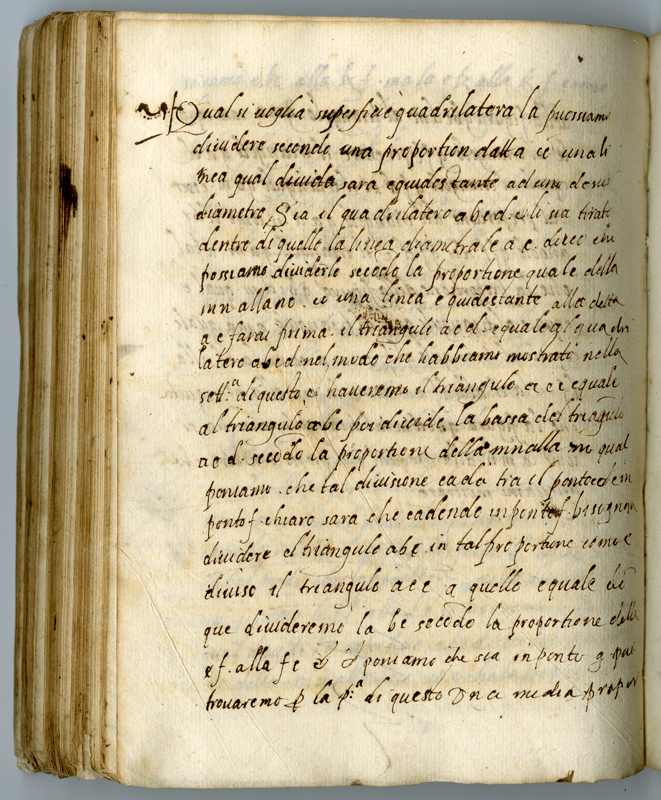 Qual si voglia superficie quadrilatera la possiamo
dividere secondo una proportion datta cõ una li
nea qual divida sara equidostante ad uno de suoi
diametro, Sia il quadrilatero abcd. e li sia tirato
dentro di quello la linea diametrale a c. dico che
possiamo dividerlo secõdo la proportione quale della
mn allano. cõ una linea equidestante alla detta
a c farai prima il triangulo acd. equale al quadri
latero abcd nel modo che habbiamo mostrato nella
sett.ª di questo e haveremo il triangulo a c e equale
al triangulo abc poi divide la bassa del triãgulo
acd. secõdo la proportione della mnalla no qual
poniamo che tal divisione cada tra il ponto c de in
ponto f. chiaro sara che cadendo in ponto f. bisognera
dividere el triangulo abc. in tal proportione como e
diviso il triangulo ace a quello equale
que divideremo la bc secõdo la proportione della
ef. alla fc & poniamo che sia in ponto g. poi
trovaremo ꝑ la p.ª di questo una media propor